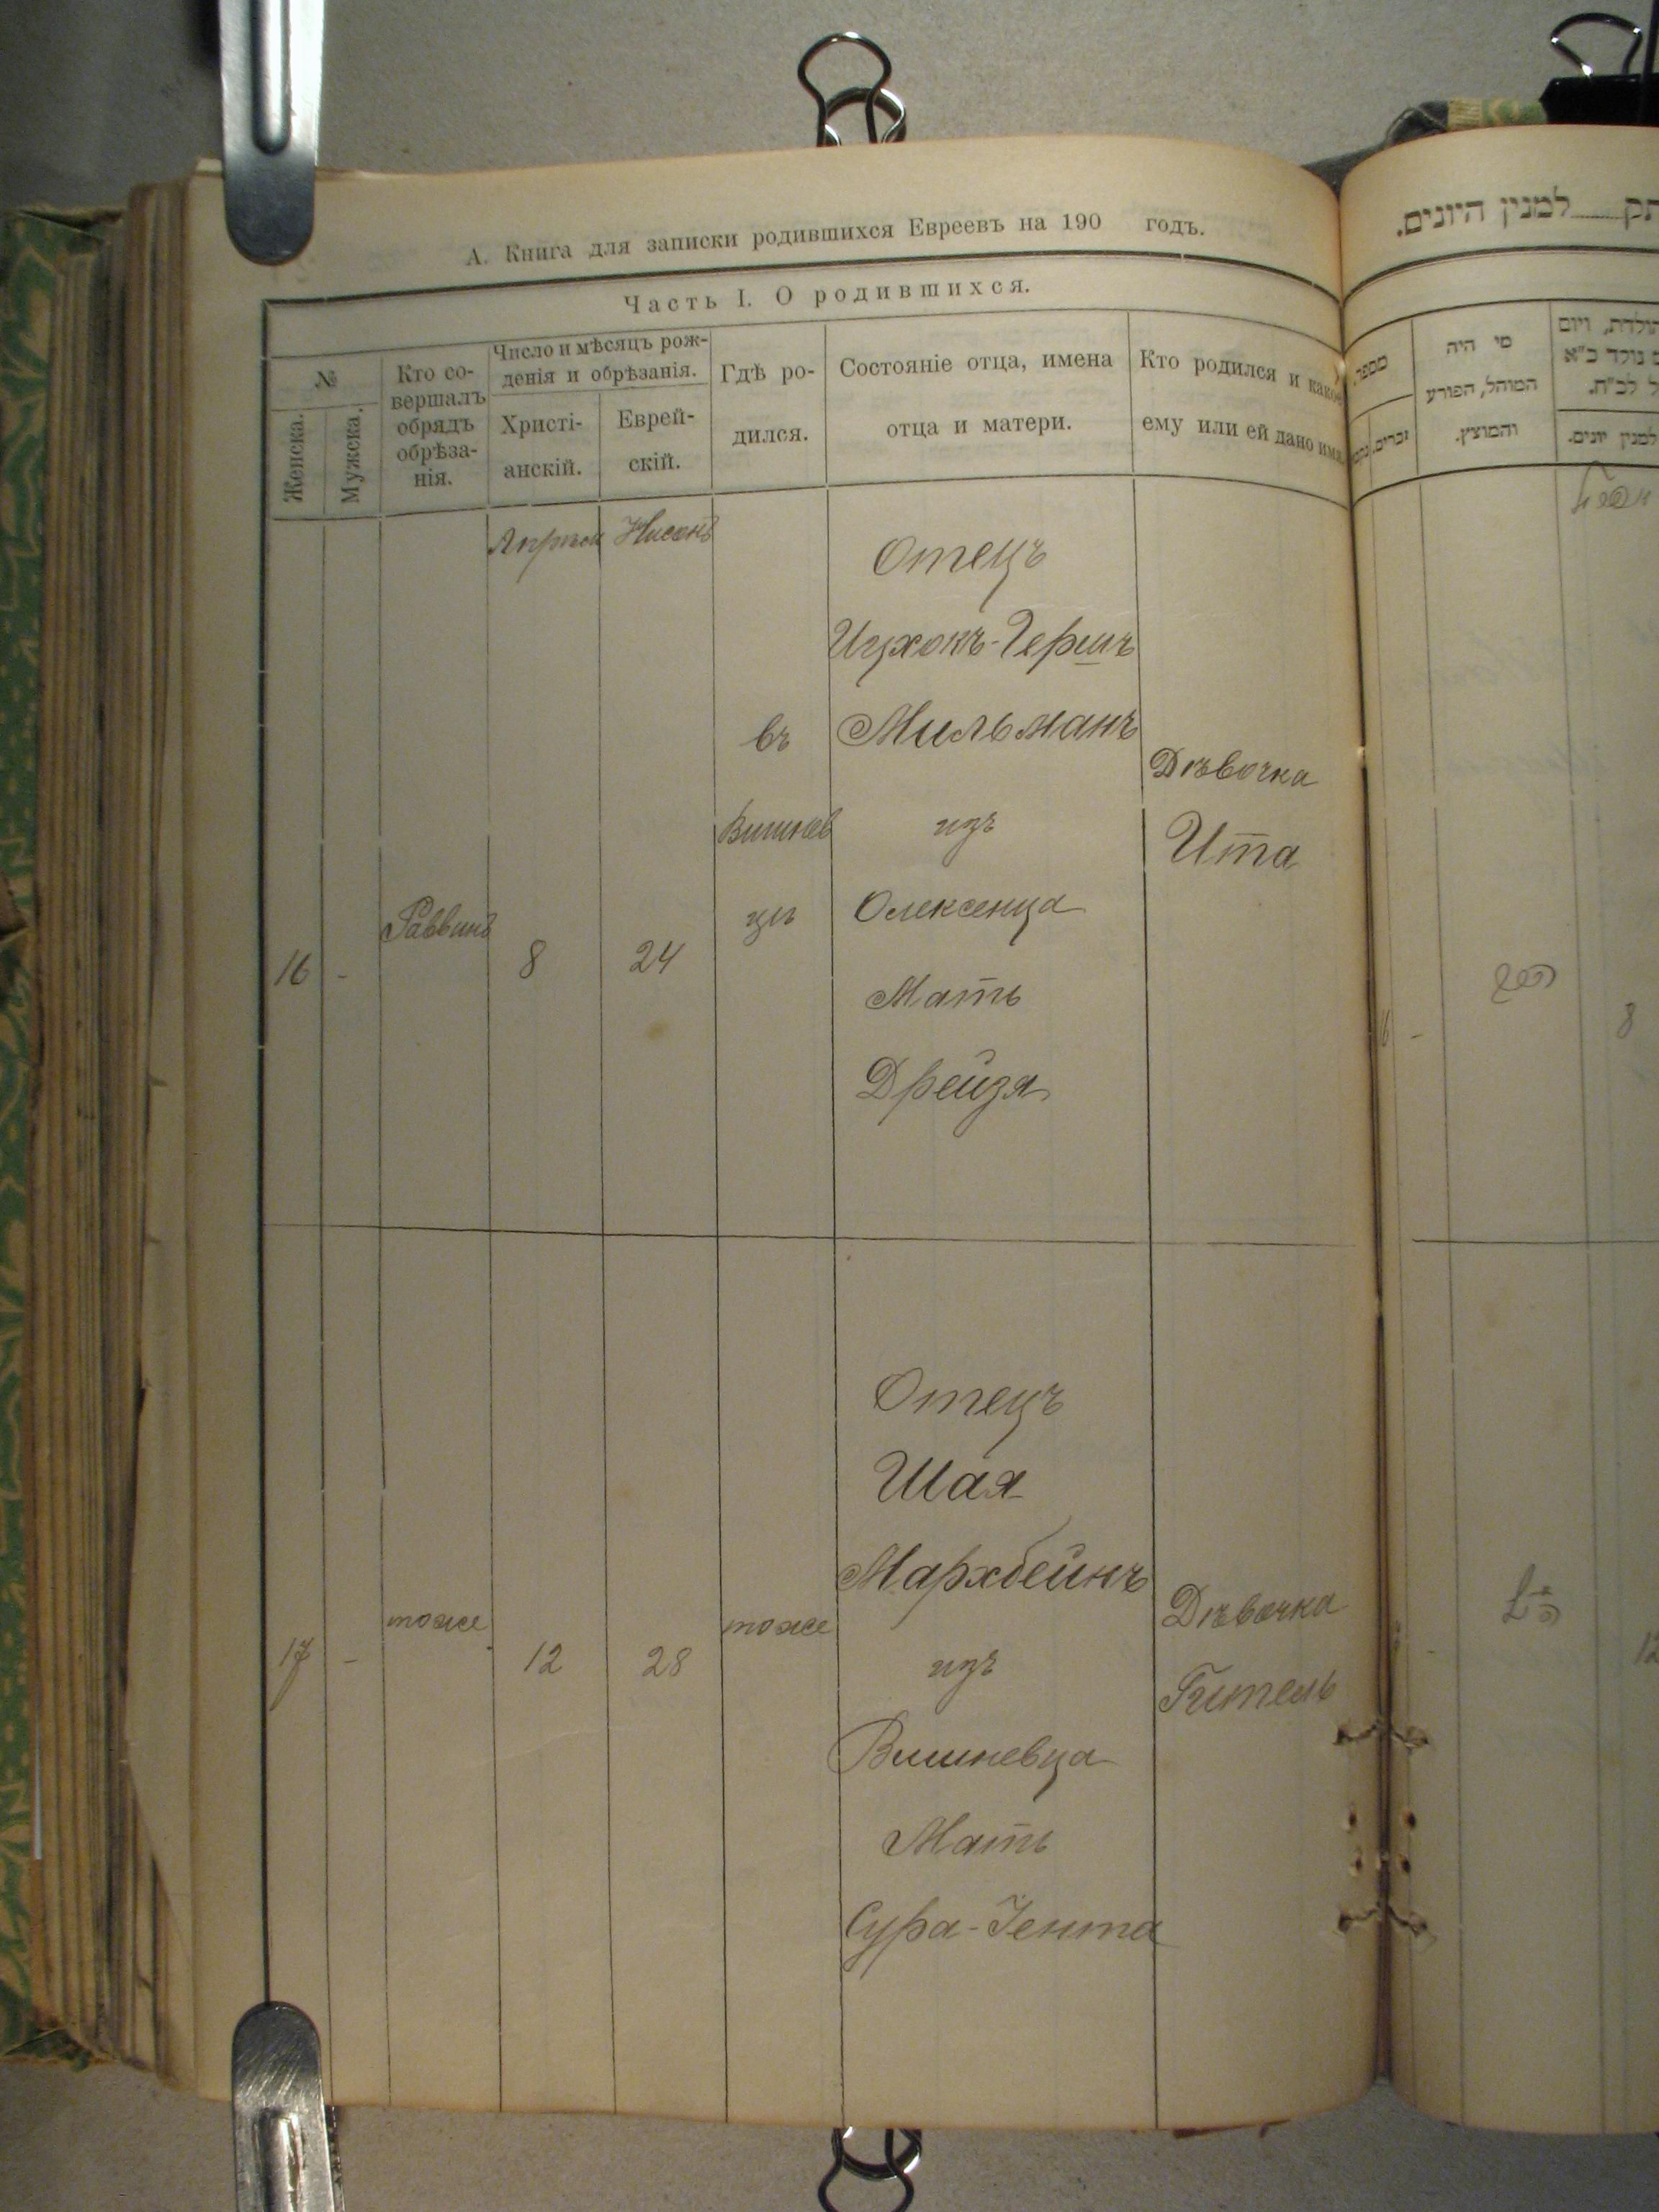 А. Книга для записки родившихся Евреевъ на 190 годъ.
Часть I. О родившихся.
№
Женска.
Мужска.
Кто со-
вершалъ
обрядъ
обрѣза-
нія.
Число и мѣсяцъ рож-
денія и обрѣзанія.
Христі-
анскій.
Еврей-
скій.
Гдѣ ро-
дился.
Состояніе отца, имена
отца и матери.
Кто родился и какое
ему или ей дано имя.
Апрѣля Нисанъ
16 - Раввинъ 8 24
въ
Вишнев
цѣ
Отецъ
Ицхокъ-Гершъ
Мильманъ
изъ
Олексенца
Мать
Дрейзя
Дѣвочка
Ита
17 - тоже 12 28 тоже
Отецъ
Шая
Мархбейнъ
изъ
Вишневца
Мать
Сура-Іента
Дѣвочка
Гитель
למנין היונים.
מספר
זכרים.
מי היה
המוהל, הפורע
והמוצץ.
למנין יונים.
8
12